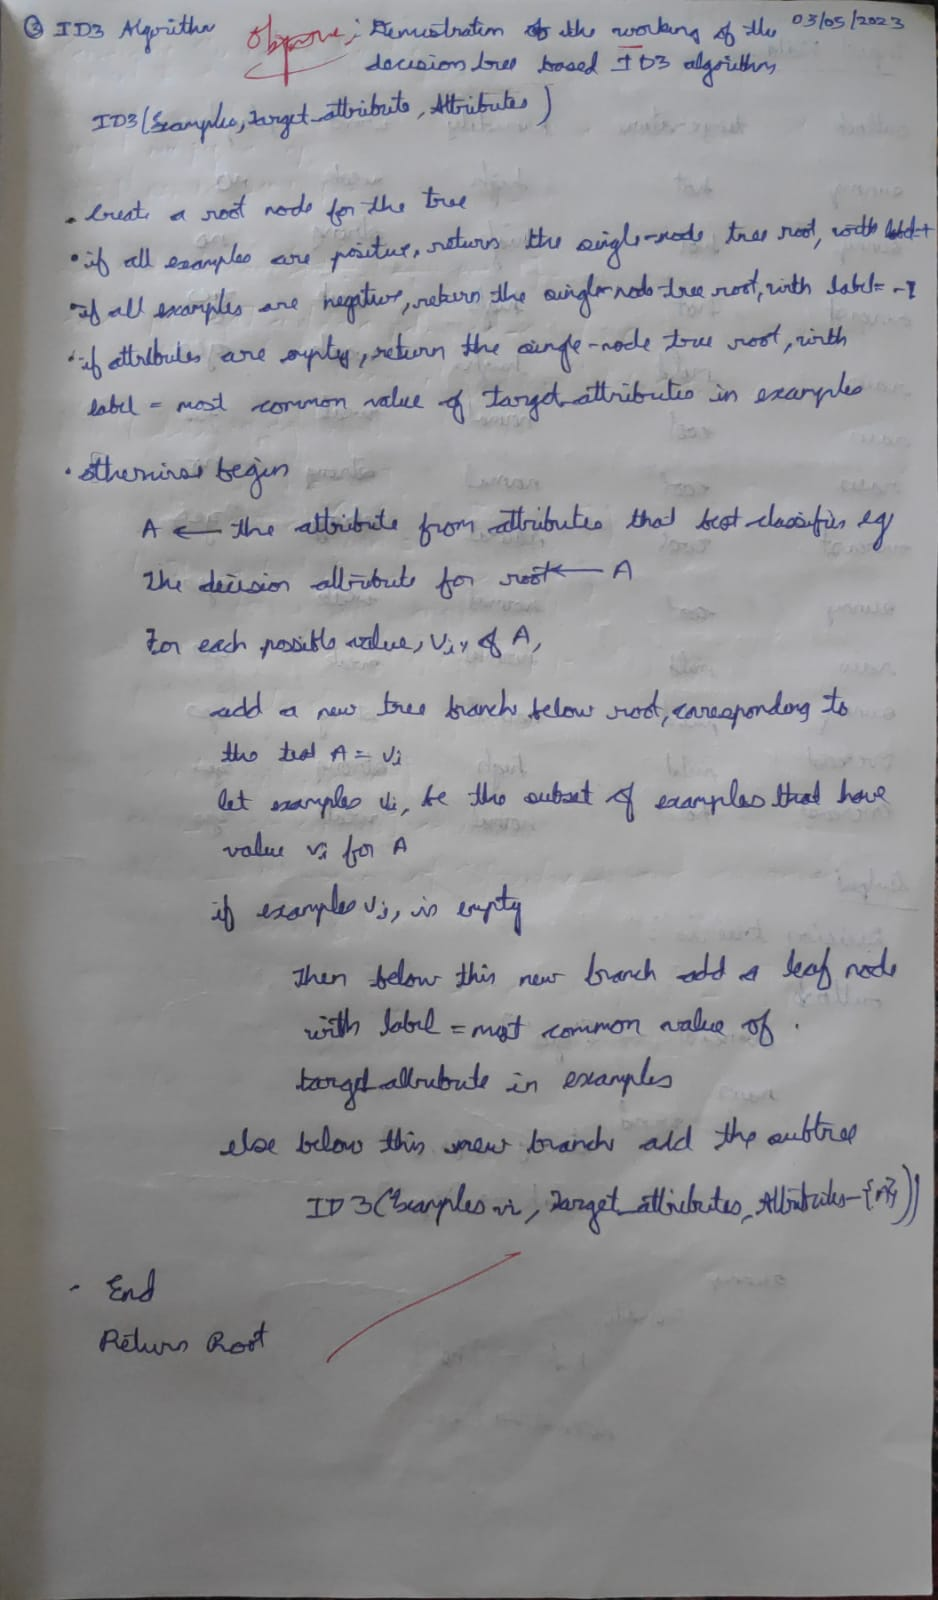 ③ ID3 Algorithm Objective: Demonstration of the working of the 03/05/2023
decision tree based ID3 algorithm
ID3(Examples, Target_attribute, Attributes)
• Create a root node for the tree
• if all examples are positive, return the single-node tree root, with label +
• if all examples are negative, return the single-node tree root, with label = -
• if attributes are empty, return the single-node tree root, with
label = most common value of target_attributes in examples
• otherwise begin
A ← the attribute from attributes that best classifies eg
The decision attribute for root ← A
For each possible value, Vi, of A,
add a new tree branch below root, corresponding to
the test A = Vi
let examples vi, be the subset of examples that have
value vi for A
if examples vi, is empty
Then below this new branch add a leaf node
with label = most common value of
target_attribute in examples
else below this new branch add the subtree
ID3(Examples vi, Target_attributes, Attributes-{A}))
- End
Return Root